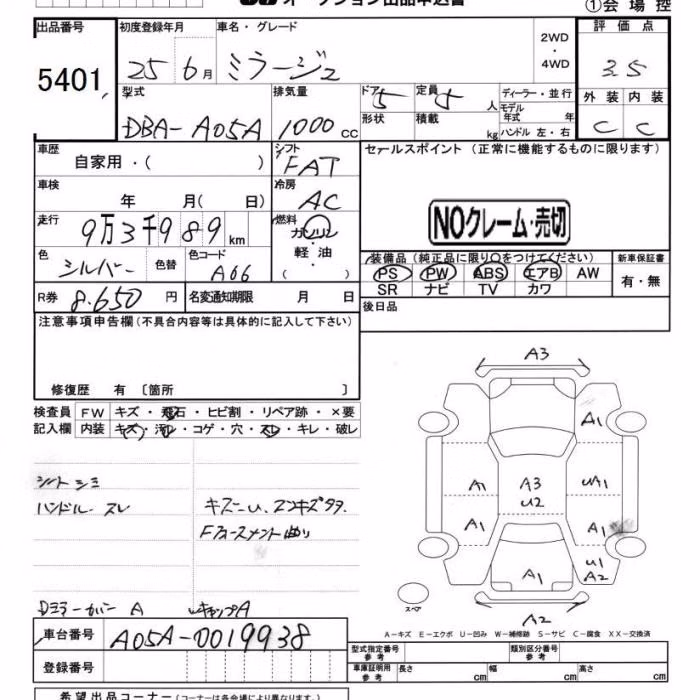 オークション出品申込書
①会場控
出品番号 初度登録年月 車名・グレード 2WD・4WD 評価点
5401 25 6月 ミラージュ 3.5
型式 排気量 ドア 5 定員 5 人 ディーラー・並行 外装 内装
DBA-A05A 1000 cc 形状 積載 kg モデル年式 年 ハンドル 左・右 C C
車歴 シフト セールスポイント (正常に機能するものに限ります)
自家用・( ) FAT
車検 冷房
年 月( 日) AC NOクレーム・売切
走行 燃料
9万3千989km ガソリン・軽油・( )
色 色替 色コード 装備品 (純正品に限り○をつけてください) 新車保証書
シルバー A66 PS PW ABS エアB AW 有・無
SR ナビ TV カワ
R券 8.650 円 名変通知期限 月 日 後日品
注意事項申告欄(不具合内容等は具体的に記入して下さい)
修復歴 有 〔箇所 〕
検査員 FW キズ・飛石・ヒビ割・リペア跡・×要
記入欄 内装 キズ・汚レ・コゲ・穴・スレ・キレ・破レ
シートシミ
ハンドル スレ キズ一U.
曲り
Dミラーカバー A キャップA
A3
A1
A1 A3 UA1
U2
A1 A1
U1
A1 A2
スペア A2
A-キズ E-エクボ U-凹み W-補修跡 S-サビ C-腐食 XX-交換済
車台番号 A05A-0019938
型式指定番号 参考 類別区分番号 参考
登録番号 車庫証明用 参考 長さ cm 幅 cm 高さ cm
希望出品コーナー(コーナーは各会場により異なります。)